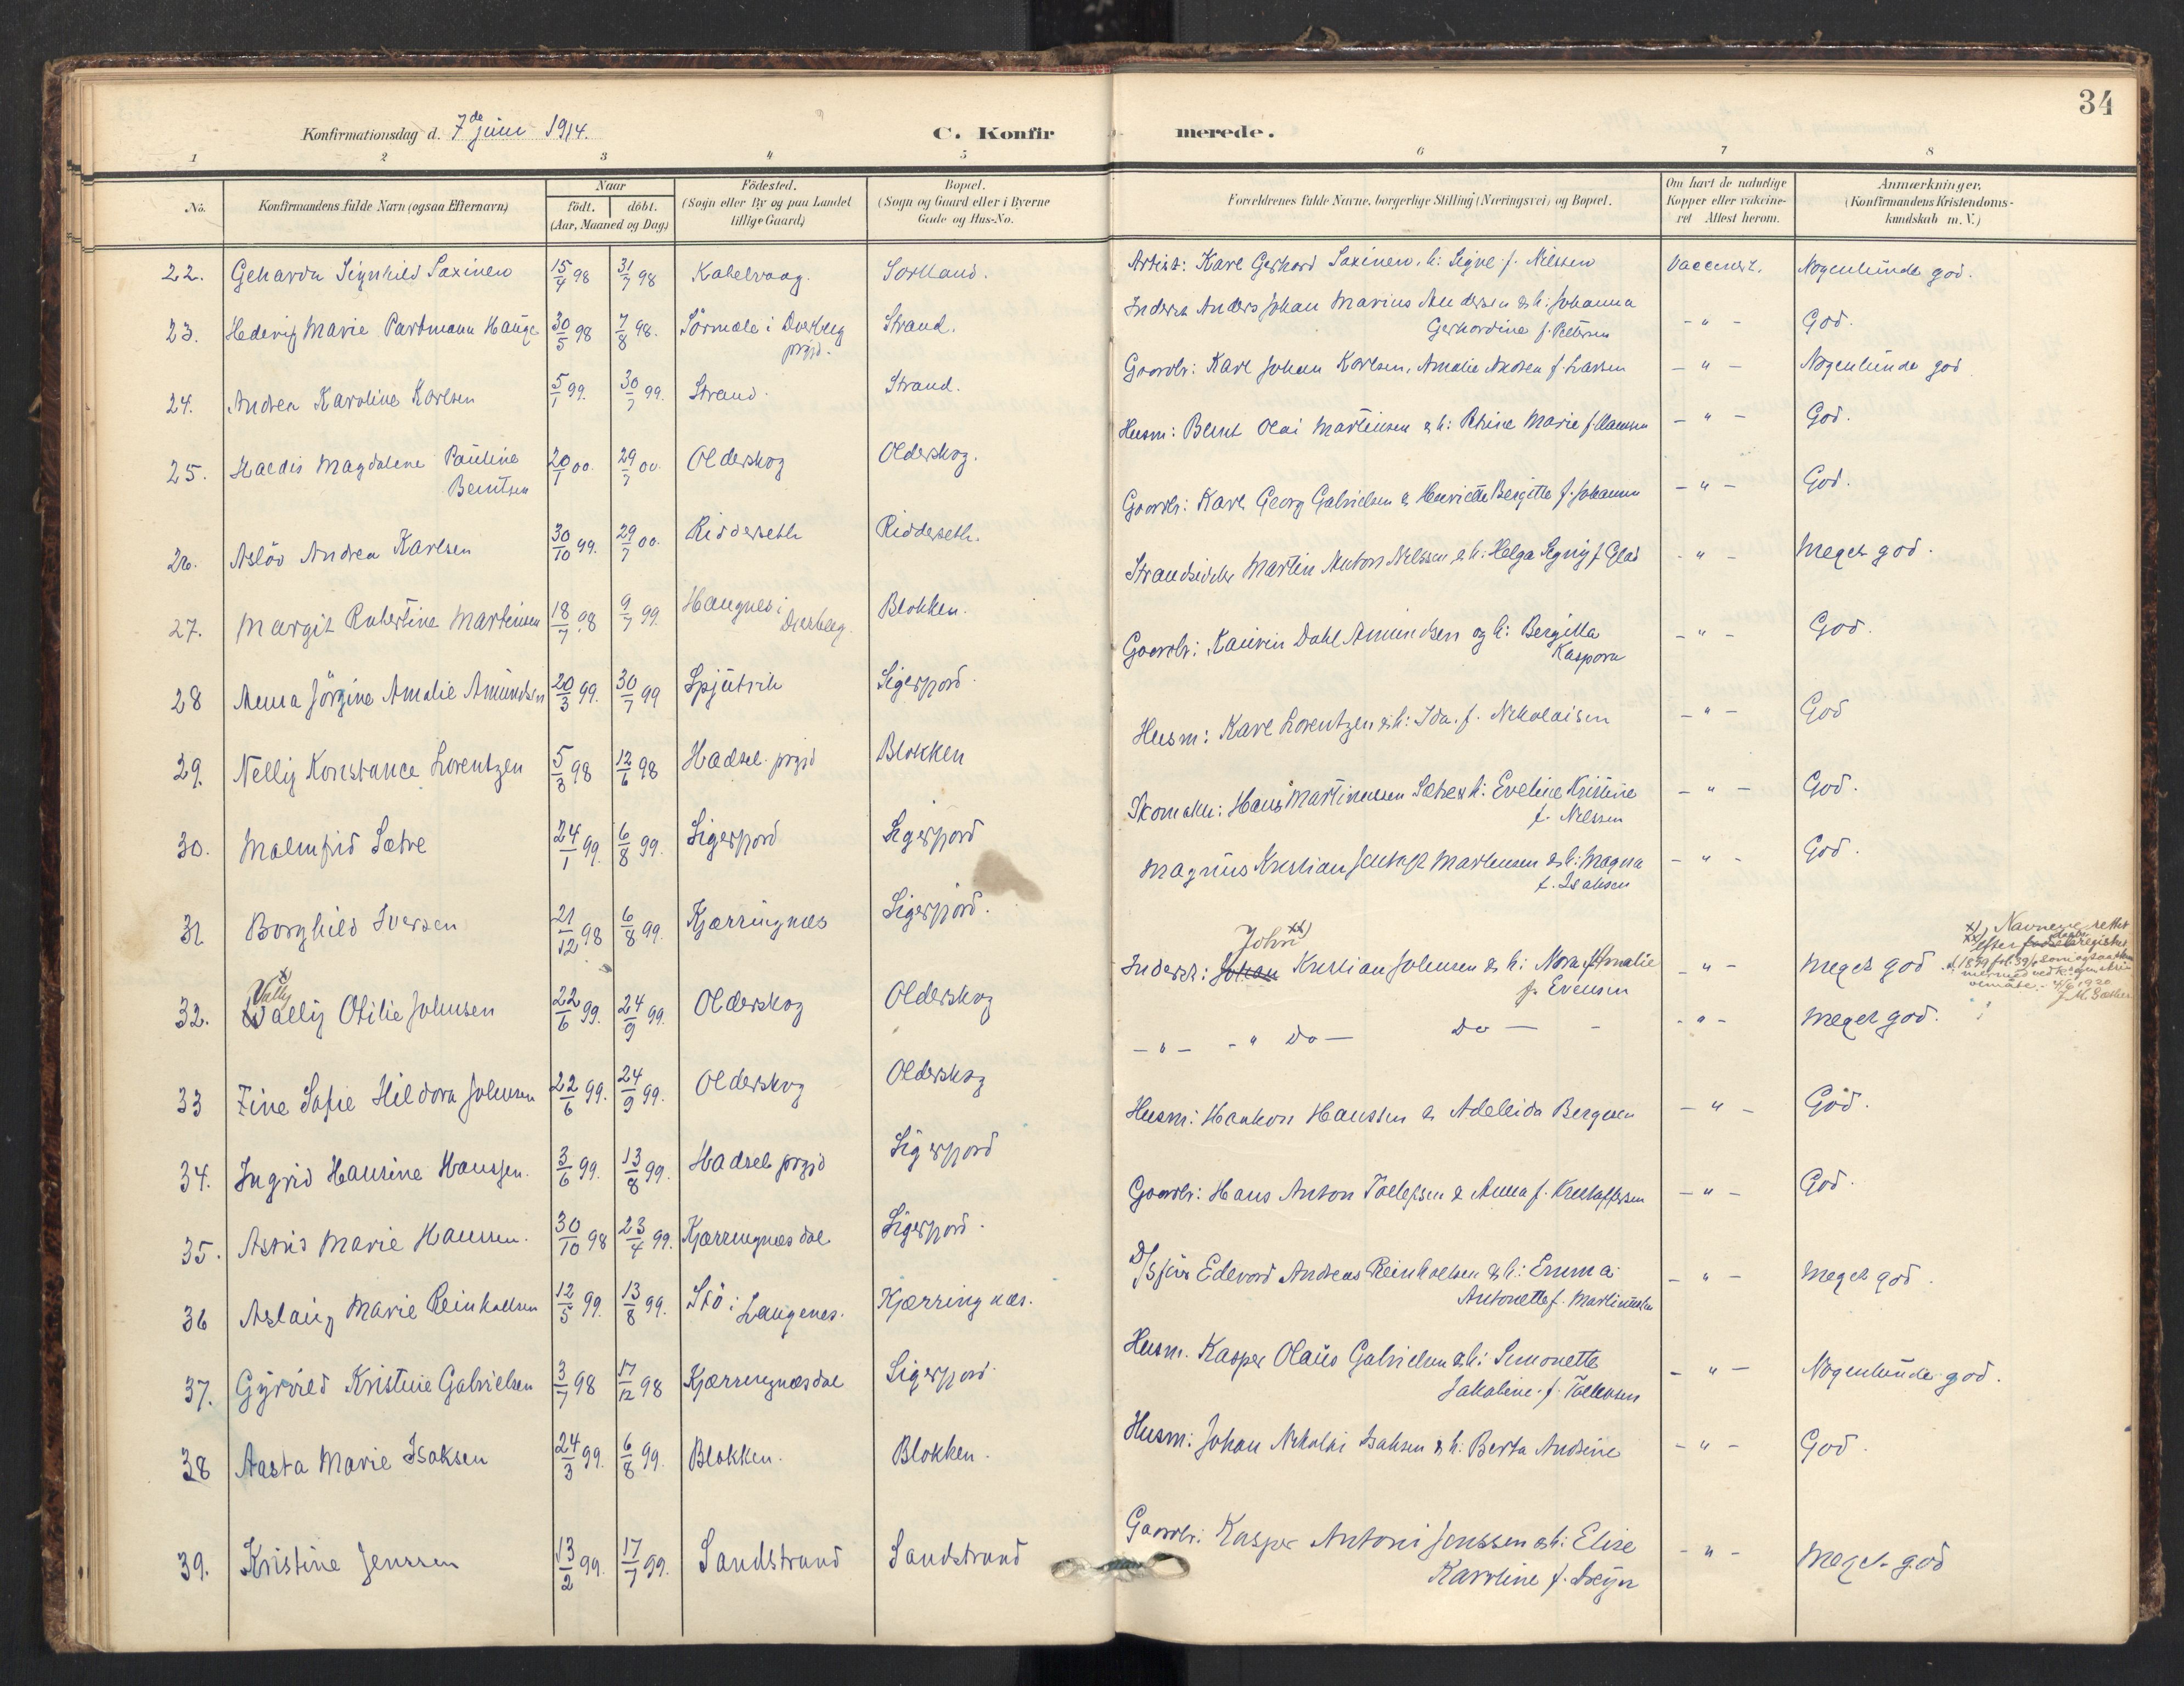 34
Konfirmationsdag d. 7de juni 1914.
C. Konfirmerede.
1 2 3 4 5 6 7 8
No.
Konfirmandens fulde Navn (ogsaa Efternavn)
Naar
födt. döbt.
(Aar, Maaned og Dag)
Födested.
(Sogn eller By og paa Landet
tillige Gaard)
Bopæl.
(Sogn og Gaard eller i Byerne
Gade og Hus-No.
Forældrenes fulde Navne, borgerlige Stilling (Næringsvei) og Bopæl.
Om havt de naturlige
Kopper eller vakcine-
ret Attest herom.
Anmærkninger.
(Konfirmandens Kristendoms-
kundskab m. V.)
22. Geharda Signhild Saxinen 15/4 98 31/7 98 Kabelvaag. Sortland. Artist: Karl Gerhard Saxinen, h: Signe f. Nilssen Vaccinert. Nogenlunde god.
23. Hedevig Marie Partmann Hauge 30/5 98 7/8 98. Sørmale i Dverberg prgjd. Strand. Inderst Anders Johan Marius Andersen & h: Johanna
Gerhardine f. Pettersen - " - God.
24. Andrea Karoline Karlsen 5/1 99. 30/7 99. Strand. Strand. Gaardbr: Karl Johan Karlsen, Amalie f. Larsen - " - Nogenlunde god
25. Haldis Magdalene Pauline
Berntsen 20/1 00. 29/7 00. Olderskog Olderskog. Husm: Bernt Olai Martinsen & h: Petrine Marie f. Hansen - " - God.
26. Aslöv Andrea Karlsen 30/10 99. 29/7 00. Ridderseth Ridderseth. Gaardbr: Karl Georg Gabrielsen & Henriette Bergitte f. Johansen - " - God.
27. Margit Robertine Martinsen 18/7 98 9/7 99. Haugnes i Dverberg. Blokken. Strandsidder Martin Anton Nilssen & h: Helga f. - " - Meget god.
28 Anna Jörgine Amalie Amundsen 20/3 99. 30/7 99 Spjutvik Sigerfjord. Gaardbr: Dahl Amundsen og h: Bergitta
Kaspara - " - God.
29. Nelly Konstance Lorentzen 5/3 98 12/6 98 Hadsel prgjd Blokken Husm: Karl Lorentzen & h: Ida f. Nikolaisen - " - God
30. Malmfrid Sætre 24/1 99. 6/8 99. Sigerfjord Sigerfjord Skomaker: Hans Martinussen Sætre & h: Eveline Kristine
f. Nilssen - " - God.
31 Borghild Iversen 21/12 98 6/8 99. Kjærringnes Sigerfjord. Magnus Kristian Martinsen & h: Magna
f. Isaksen - " - God.
32. Vally x) Wally Otilie Johnsen 22/6 99. 24/9 99. Olderskog Olderskog Inderst: John xx) Johan Kristian Johnsen & h: Nora Amalie
f. Evensen - " - Meget god.
x) xx) Navnene rettet
efter fødsels daabsregistret
1899 4/6 1920
J. M. Sæther
33 Tine Sofie Hildora Johnsen 22/6 99. 24/9 99. Olderskog Olderskog - " - - " Do - Do - - - " - Meget god.
34. Ingrid Hansine Hanssen. 3/6 99. 13/8 99. Hadsel prgjd Sigerfjord Husm: Haakon Hanssen & Adeleida Bergesen - " - God.
35. Astrid Marie Hansen. 30/10 98 23/4 99. Kjærringnesdal Sigerfjord. Gaardbr: Hans Anton Tollefsen & Anna f. Kristoffersen - " - God.
36 Aslaug Marie Reinholtsen 12/5 99. 13/8 99. Stö i Langenes. Kjærringnes. Edevard Andreas Reinholtsen & h: Emma
Antonette f. Martinussen - " - Meget god.
37. Gyrvild Kristine Gabrielsen 3/7 98 17/12 98 Kjærringnesdal Sigerfjord. Husm. Kasper Olaus Gabrielsen & h: Simonette
Jakobine f. Tollefsen - " - Nogenlunde god.
38 Aasta Marie Isaksen 24/3 99. 6/8 99. Blokken. Blokken. Husm: Johan Nikolai Isaksen & h: Berta Andrine - " - God.
39. Kristine Jenssen 13/2 99. 17/7 99. Sandstrand Sandstrand Gaardbr: Kasper Antoni Jenssen & h: Elise
Karoline f. - " - Meget god